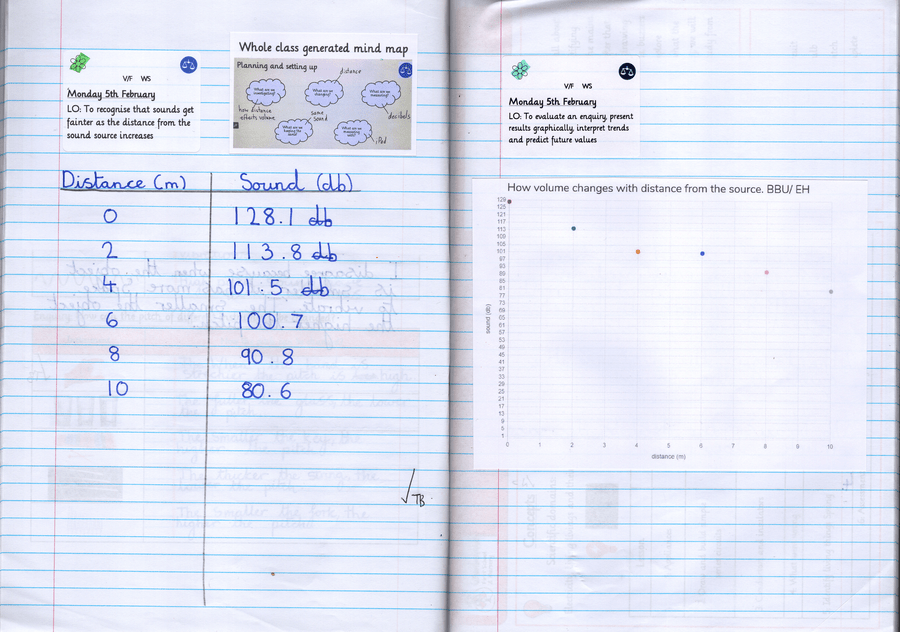 V/F WS
Monday 5th February
LO: To recognise that sounds get
fainter as the distance from the
sound source increases
Whole class generated mind map
Planning and setting up
distance
What are we investigating?
What are we changing?
What are we measuring?
how distance
effects volume
same
sound
decibels
iPad
Distance (m) Sound (db)
0 128.1 db
2 113.8 db
4 101.5 db
6 100.7
8 90.8
10 80.6
TB
V/F WS
Monday 5th February
LO: To evaluate an enquiry, present
results graphically, interpret trends
and predict future values
How volume changes with distance from the source. BBU/ EH
129
125
121
117
113
109
105
101
97
93
89
85
81
77
73
69
65
61
57
53
49
45
41
37
33
29
25
21
17
13
9
5
1
sound (db)
0 1 2 3 4 5 6 7 8 9 10
distance (m)